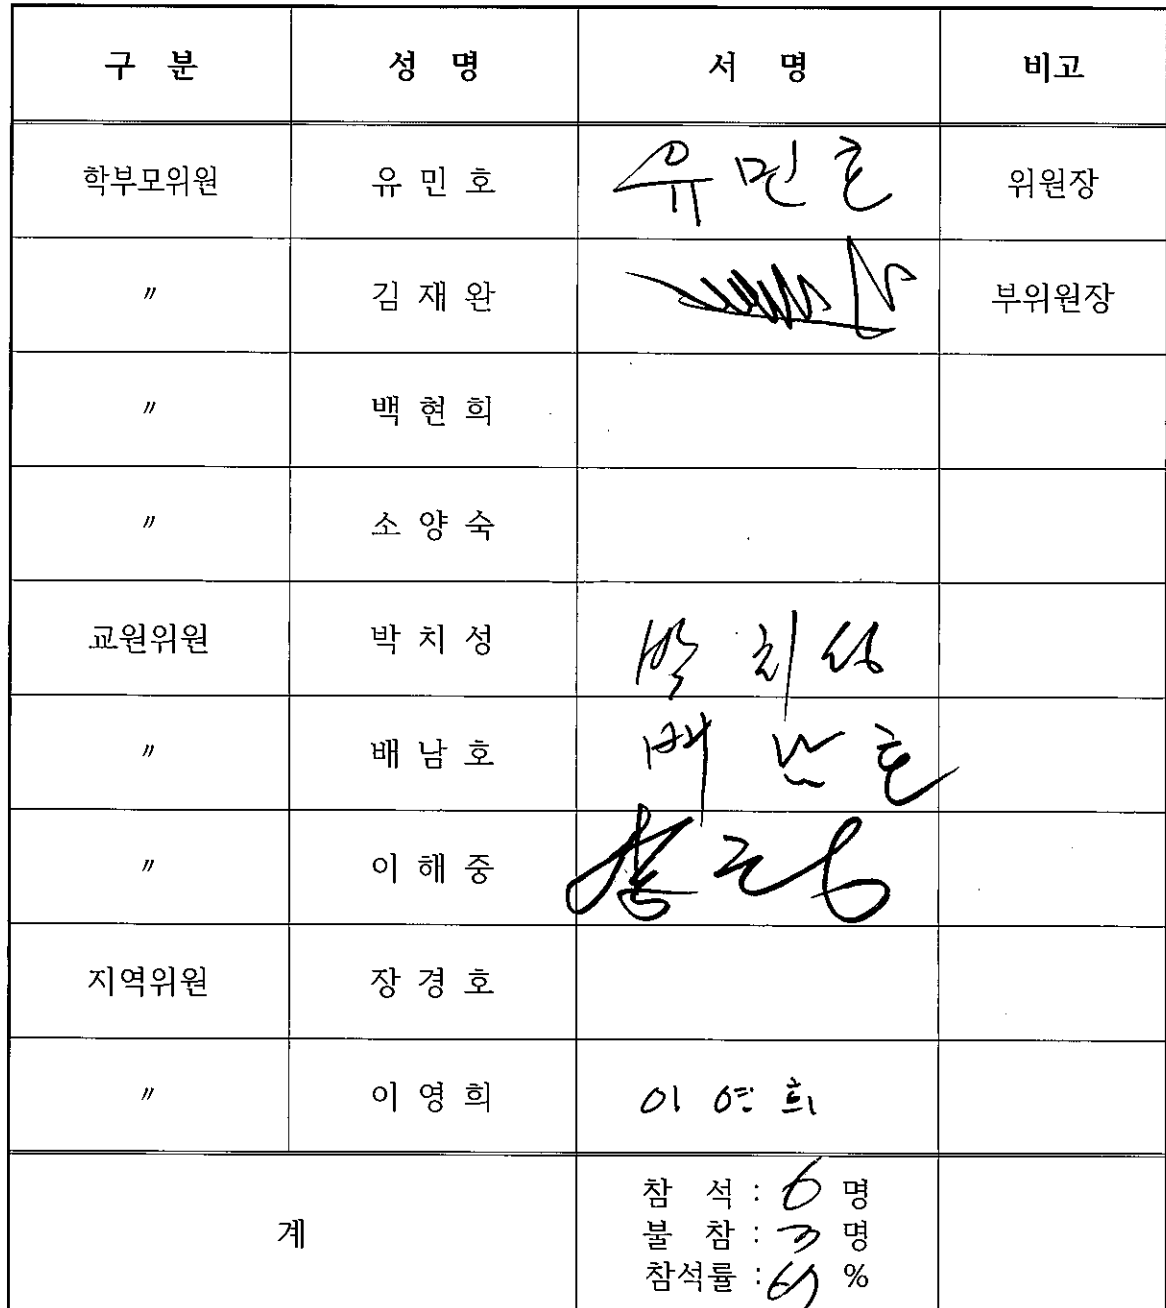 구 분 성 명 서 명 비고
학부모위원 유 민 호 유 민 호 위원장
〃 김 재 완 부위원장
〃 백 현 희
〃 소 양 숙
교원위원 박 치 성 박 치 성
〃 배 남 호 배 남 호
〃 이 해 중
지역위원 장 경 호
〃 이 영 희 이 영 희
계 참 석 : 6 명
불 참 : 3 명
참석률 : %